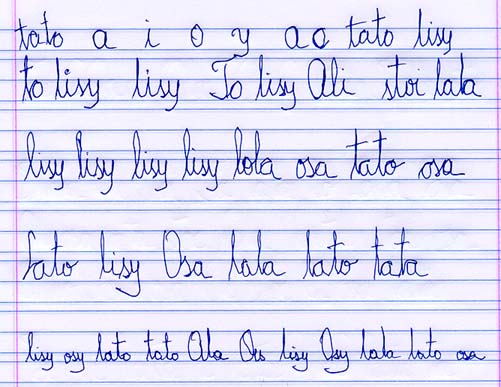 tato a i o y a o tato lisy
to lisy lisy To lisy Ali stoi lala
lisy lisy lisy lisy lola osa tato osa
lato lisy Osa lala lato tata
lisy osy lato tato Ala lisy Osy lala lato osa